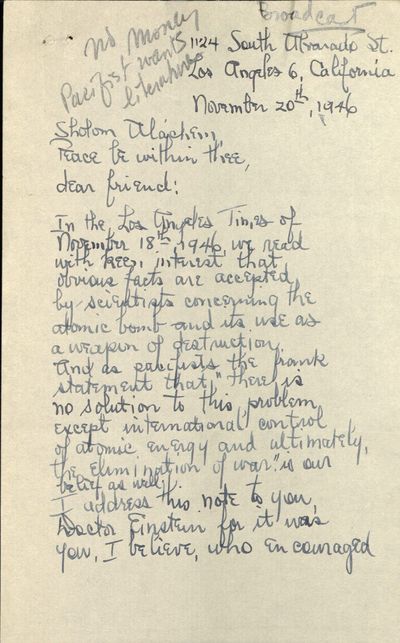 broadcast
No Money
Pacifist wants
literature
1124 South Alvarado St.
Los Angeles 6, California
November 20th, 1946
Sholom Alàchem,
Peace be within thee,
dear friend:
In the Los Angeles Times of
November 18th, 1946, we read
with keen interest that
obvious facts are accepted
by scientists concerning the
atomic bomb and its use as
a weapon of destruction.
And as pacifists the frank
statement that, "there is
no solution to this problem
except international control
of atomic energy and ultimately,
the elimination of war." is our
belief as well.
I address this note to you,
Doctor Einstein for it was
you, I believe, who encouraged